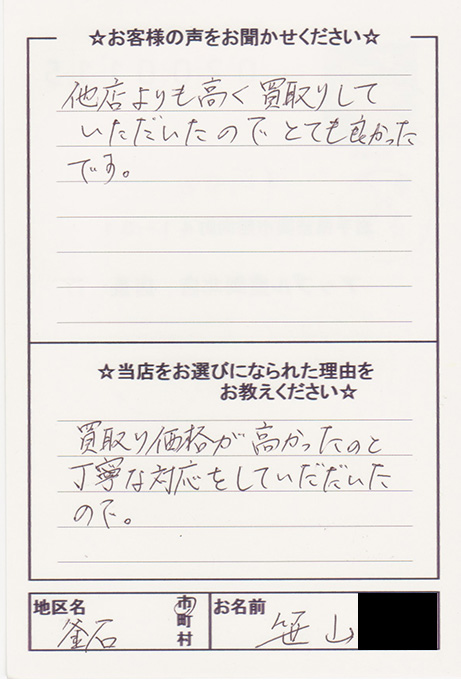 ☆お客様の声をお聞かせください☆
他店よりも高く買取りして
いただいたのでとても良かった
です。
☆当店をお選びになられた理由を
お教えください☆
買取り価格が高かったのと
丁寧な対応をしていだだいた
ので。
地区名
釜石
市
町
村
お名前
笹山